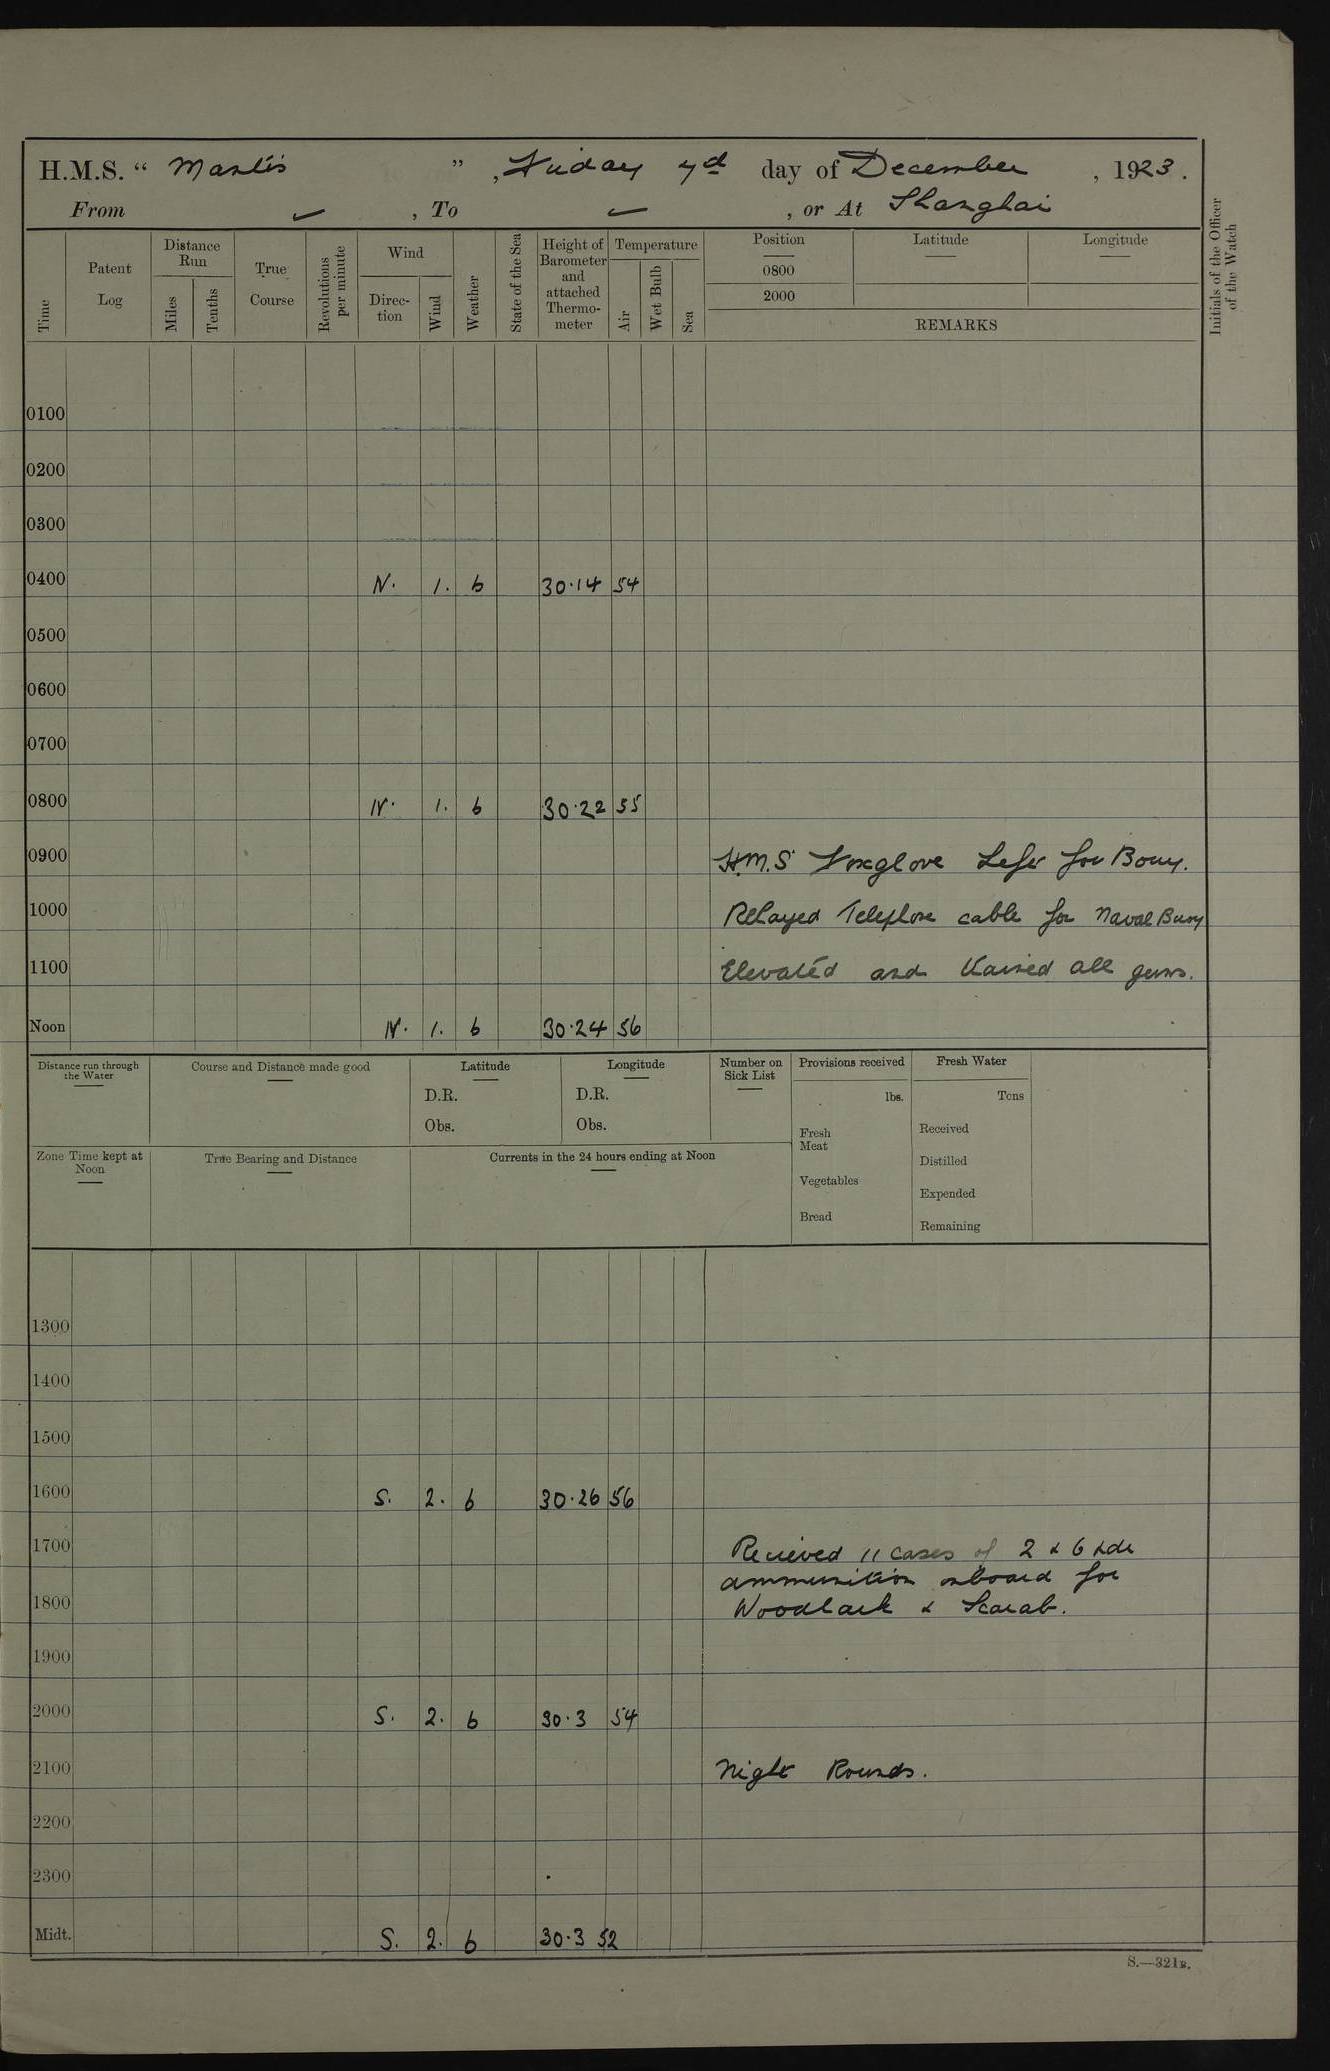 H.M.S. “ Mantis ” , Friday 7d day of December , 1923 .
From ✓ , To ✓ , or At Shanghai
Time
Patent Log
Distance Run
Miles
Tenths
True Course
Revolutions per minute
Wind
Direc-tion
Wind
Weather
State of the Sea
Height of Barometer and attached Thermo-meter
Temperature
Air
Wet Bulb
Sea
Position
0800
2000
Latitude
Longitude
REMARKS
Initials of the Officer of the Watch
0100
0200
0300
0400 N. 1. b 30.14 54
0500
0600
0700
0800 N. 1. b 30.22 55
0900 H.M.S Foxglove Left for Bouy.
1000 Relayed Telephone cable for Naval Buoy
1100 Elevated and trained all guns.
Noon N. 1. b 30.24 56
Distance run through the Water
Course and Distance made good
Latitude
D.R.
Obs.
Longitude
D.R.
Obs.
Number on Sick List
Provisions received
lbs.
Fresh Meat
Vegetables
Bread
Fresh Water
Tons
Received
Distilled
Expended
Remaining
Zone Time kept at Noon
True Bearing and Distance
Currents in the 24 hours ending at Noon
1300
1400
1500
1600 S. 2. b 30.26 56
1700 Recieved 11 cases of 2 & 6 pdr
ammunition onboard for
1800 Woodlark & Scarab.
1900
2000 S. 2. b 30.3 54
2100 Night Rounds.
2200
2300
Midt. S. 2. b 30.3 52
S.—321B.